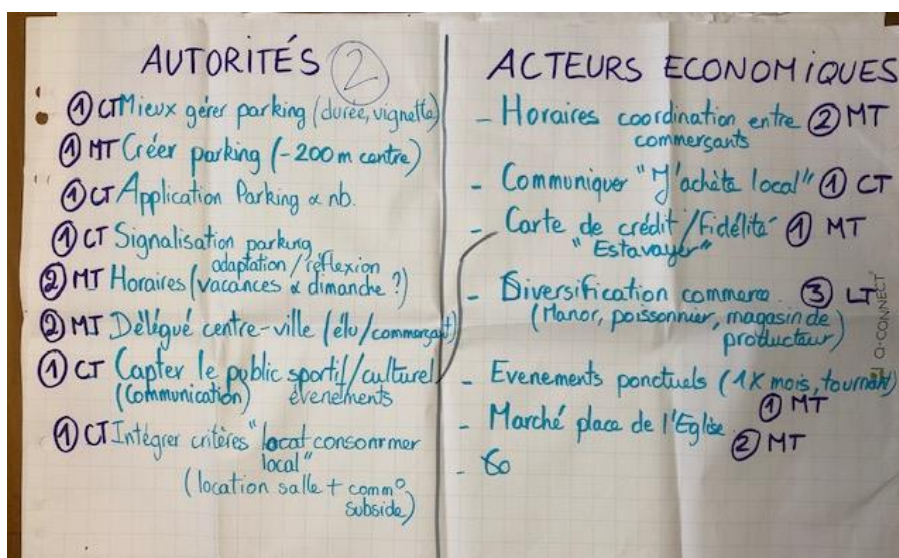 AUTORITÉS 2
① CT Mieux gérer parking (durée, vignette)
① MT Créer parking (-200m centre)
① CT Application Parking & nb.
① CT Signalisation parking
adaptation / réflexion
② MT Horaires (vacances & dimanche ?)
② MT Délégué centre-ville (élu/commerçant)
① CT Capter le public sportif/culturel
(Communication) évenements
① CT Intégrer critères "local consommer
local"
(location salle + comm°
subside)
ACTEURS ECONOMIQUES
- Horaires coordination entre ② MT
commerçants
- Communiquer "J'achète local" ① CT
- Carte de crédit/Fidélité ① MT
"Estavayer"
- Diversification commerce. ③ LT
(Manor, poissonnier, magasin de
producteur)
- Evenements ponctuels (1X mois, tournant)
① MT
- Marché place de l'Eglise
② MT
-
Q-CONNECT